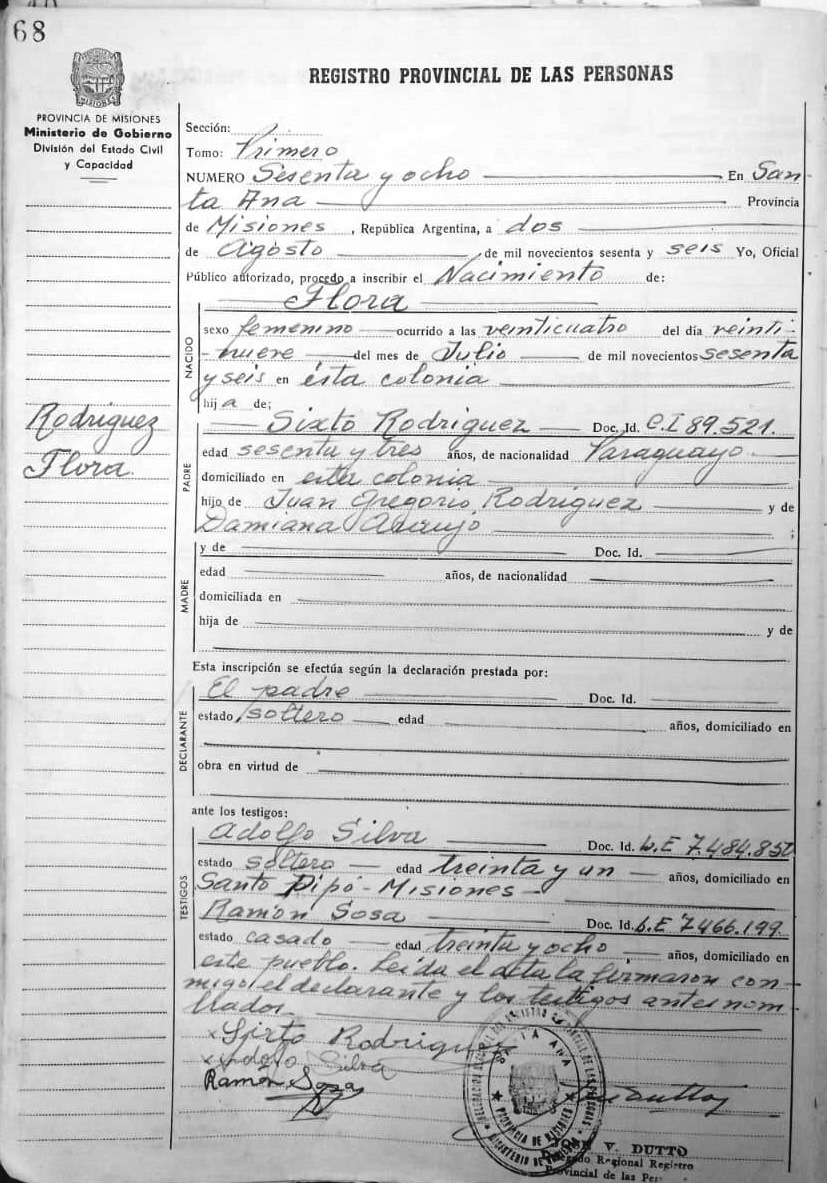 68
PROVINCIA DE MISIONES
Ministerio de Gobierno
División del Estado Civil
y Capacidad
REGISTRO PROVINCIAL DE LAS PERSONAS
Sección:
Tomo: Primero
NUMERO Sesenta y ocho En San
ta Ana Provincia
de Misiones, República Argentina, a dos
de Agosto de mil novecientos sesenta y seis Yo, Oficial
Público autorizado, procedo a inscribir el Nacimiento de:
NACIDO
Flora
sexo femenino ocurrido a las veinticuatro del día veinti-
nueve del mes de Julio de mil novecientos sesenta
y seis en ésta colonia
hija de;
Rodriguez
Flora.
PADRE
Sixto Rodriguez Doc. Id. C.I 89.521.
edad sesenta y tres años, de nacionalidad Paraguayo
domiciliado en esta colonia
hijo de Juan Gregorio Rodriguez y de
Damiana Araujo ;
MADRE
y de Doc. Id.
edad años, de nacionalidad
domiciliada en
hija de y de
Esta inscripción se efectúa según la declaración prestada por:
DECLARANTE
El padre Doc. Id.
estado soltero edad años, domiciliado en
obra en virtud de
ante los testigos:
TESTIGOS
Adolfo Silva Doc. Id. L.E 7.484.850
estado soltero edad treinta y un años, domiciliado en
Santo Pipó - Misiones -
Ramón Sosa Doc. Id. L.E 7.466.199
estado casado edad treinta y ocho años, domiciliado en
este pueblo. Leída el acta la firmaron con-
migo el declarante y los testigos antes nom-
brados
x Sixto Rodriguez
x Adolfo Silva
Ramón Sosa
SANTA ANA
PROVINCIA DE MISIONES
MINISTERIO DE
V. DUTTO
Regional Registro
Provincial de las